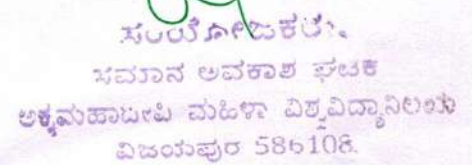 ಸಂಯೋಜಕರು.
ಸಮಾನ ಅವಕಾಶ ಘಟಕ
ಅಕ್ಕಮಹಾದೇವಿ ಮಹಿಳಾ ವಿಶ್ವವಿದ್ಯಾನಿಲಯ
ವಿಜಯಪುರ 586108.